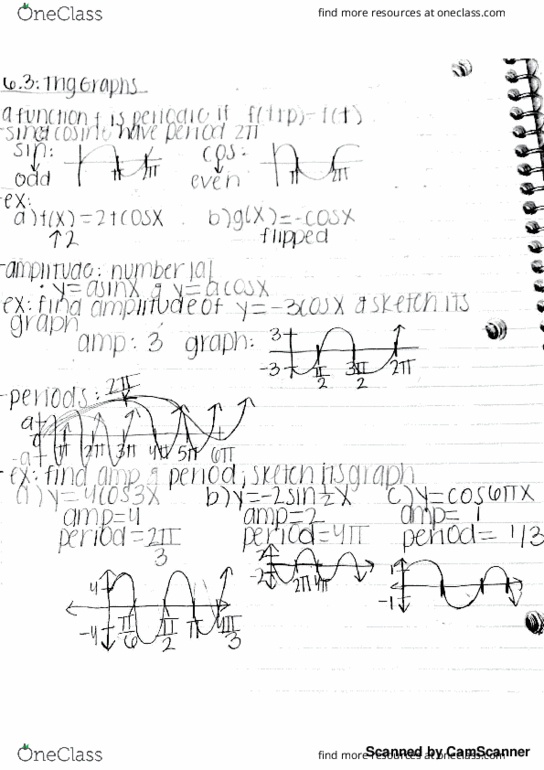 OneClass
find more resources at oneclass.com
6.3: Trig Graphs
a function f is periodic if f(t+p)=f(t)
-sine & cosine have period 2π
sin: π 2π cos: π 2π
odd even
-ex:
a) f(x)=2+cosx b) g(x)=-cosx
↑2 flipped
-amplitude: number |a|
: y=asinx & y=acosx
ex: find amplitude of y=-3cosx & sketch its
graph
amp: 3 graph: 3 -3 π/2 3π/2 2π
-periods: 2π
a
-a π 2π 3π 4π 5π 6π
-ex: find amp & period, sketch its graph
a) y=4cos3x b) y=-2sin½x c) y=cos6πx
amp=4 amp=2 amp=1
period=2π/3 period=4π period=1/3
2 -2 2π 4π 1 -1
4 -4 π/6 π/2 π
OneClass
find more resources at oneclass.com
Scanned by CamScanner